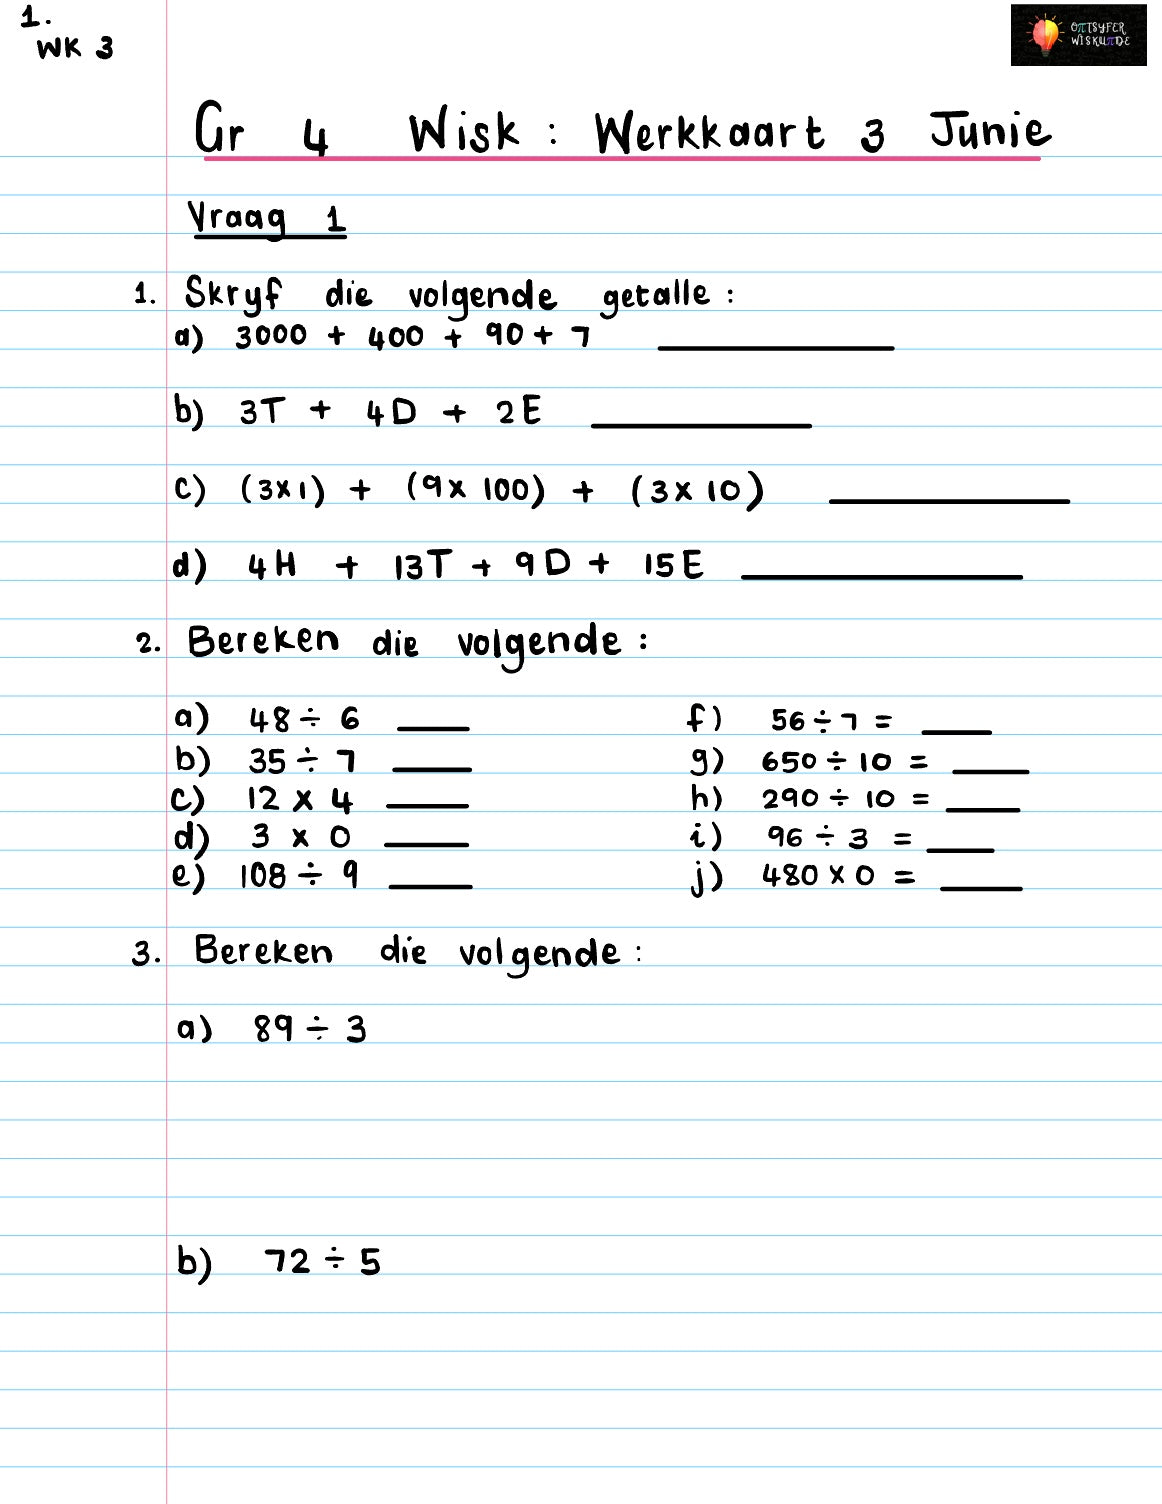 1.
WK 3
OπTSYFER
WISKUπDE
Gr 4 Wisk : Werkkaart 3 Junie
Vraag 1
1. Skryf die volgende getalle :
a) 3000 + 400 + 90 + 7 ________
b) 3T + 4D + 2E ________
c) (3x1) + (9x 100) + (3 x 10) ________
d) 4H + 13T + 9D + 15E ________
2. Bereken die volgende :
a) 48 ÷ 6 ____ f) 56 ÷ 7 = ____
b) 35 ÷ 7 ____ g) 650 ÷ 10 = ____
c) 12 x 4 ____ h) 290 ÷ 10 = ____
d) 3 x 0 ____ i) 96 ÷ 3 = ____
e) 108 ÷ 9 ____ j) 480 x 0 = ____
3. Bereken die volgende :
a) 89 ÷ 3
b) 72 ÷ 5